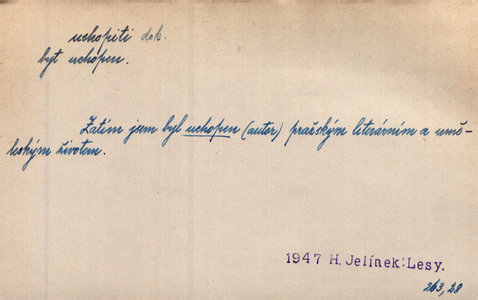 uchopiti dok.
být uchopen.
Zatím jsem byl uchopen (autor) pražským literárním a umě-
leckým životem.
1947 H. Jelínek: Lesy.
263,28